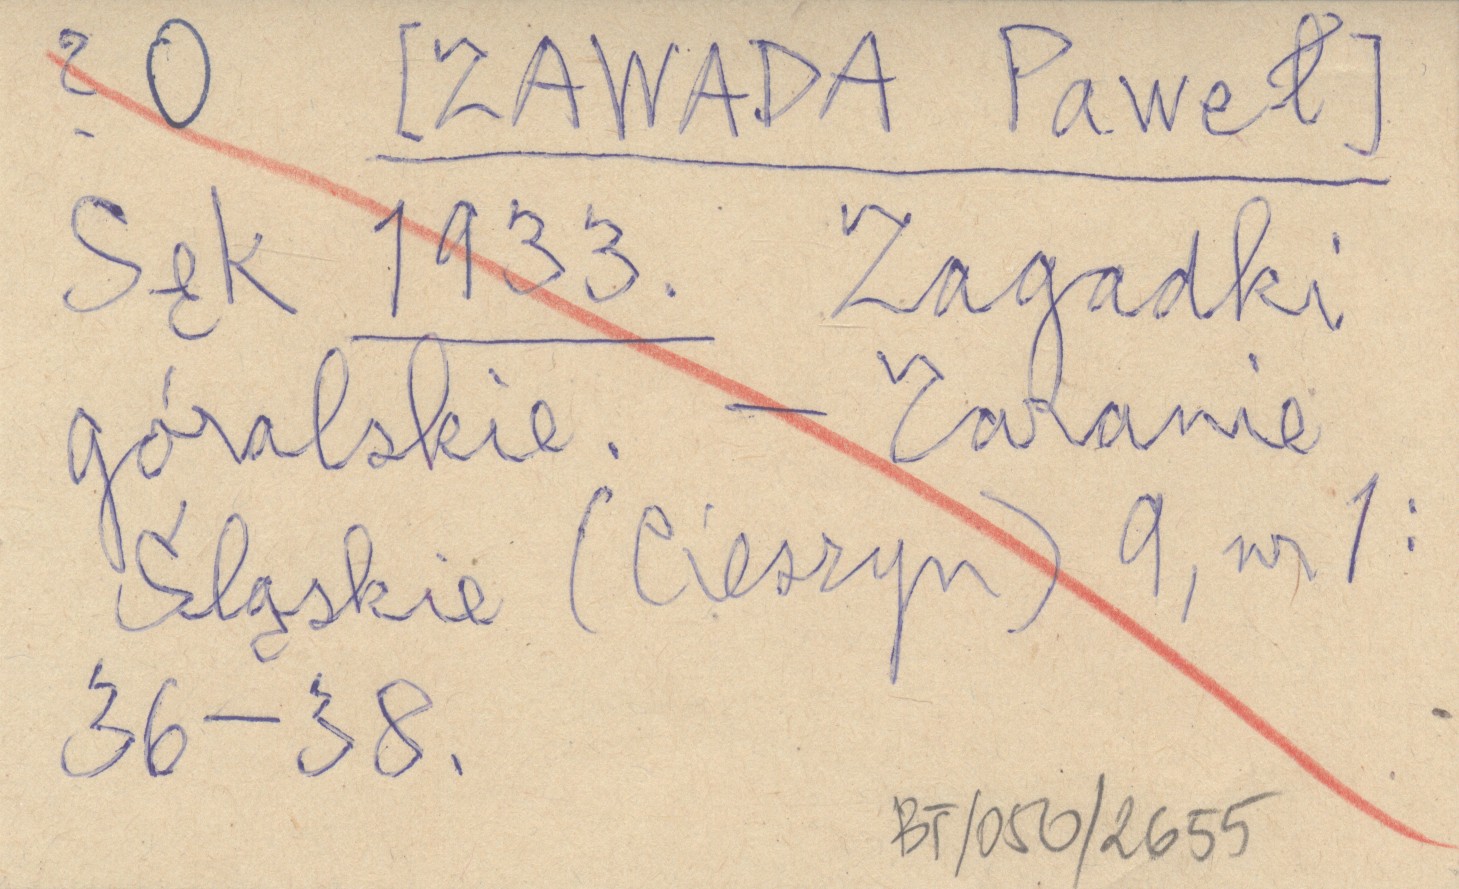 ? O [ZAWADA Paweł]
Sęk 1933. Zagadki
góralskie. — Zaranie
Śląskie (Cieszyn) 9, nr 1:
36—38.
BT/050/2655